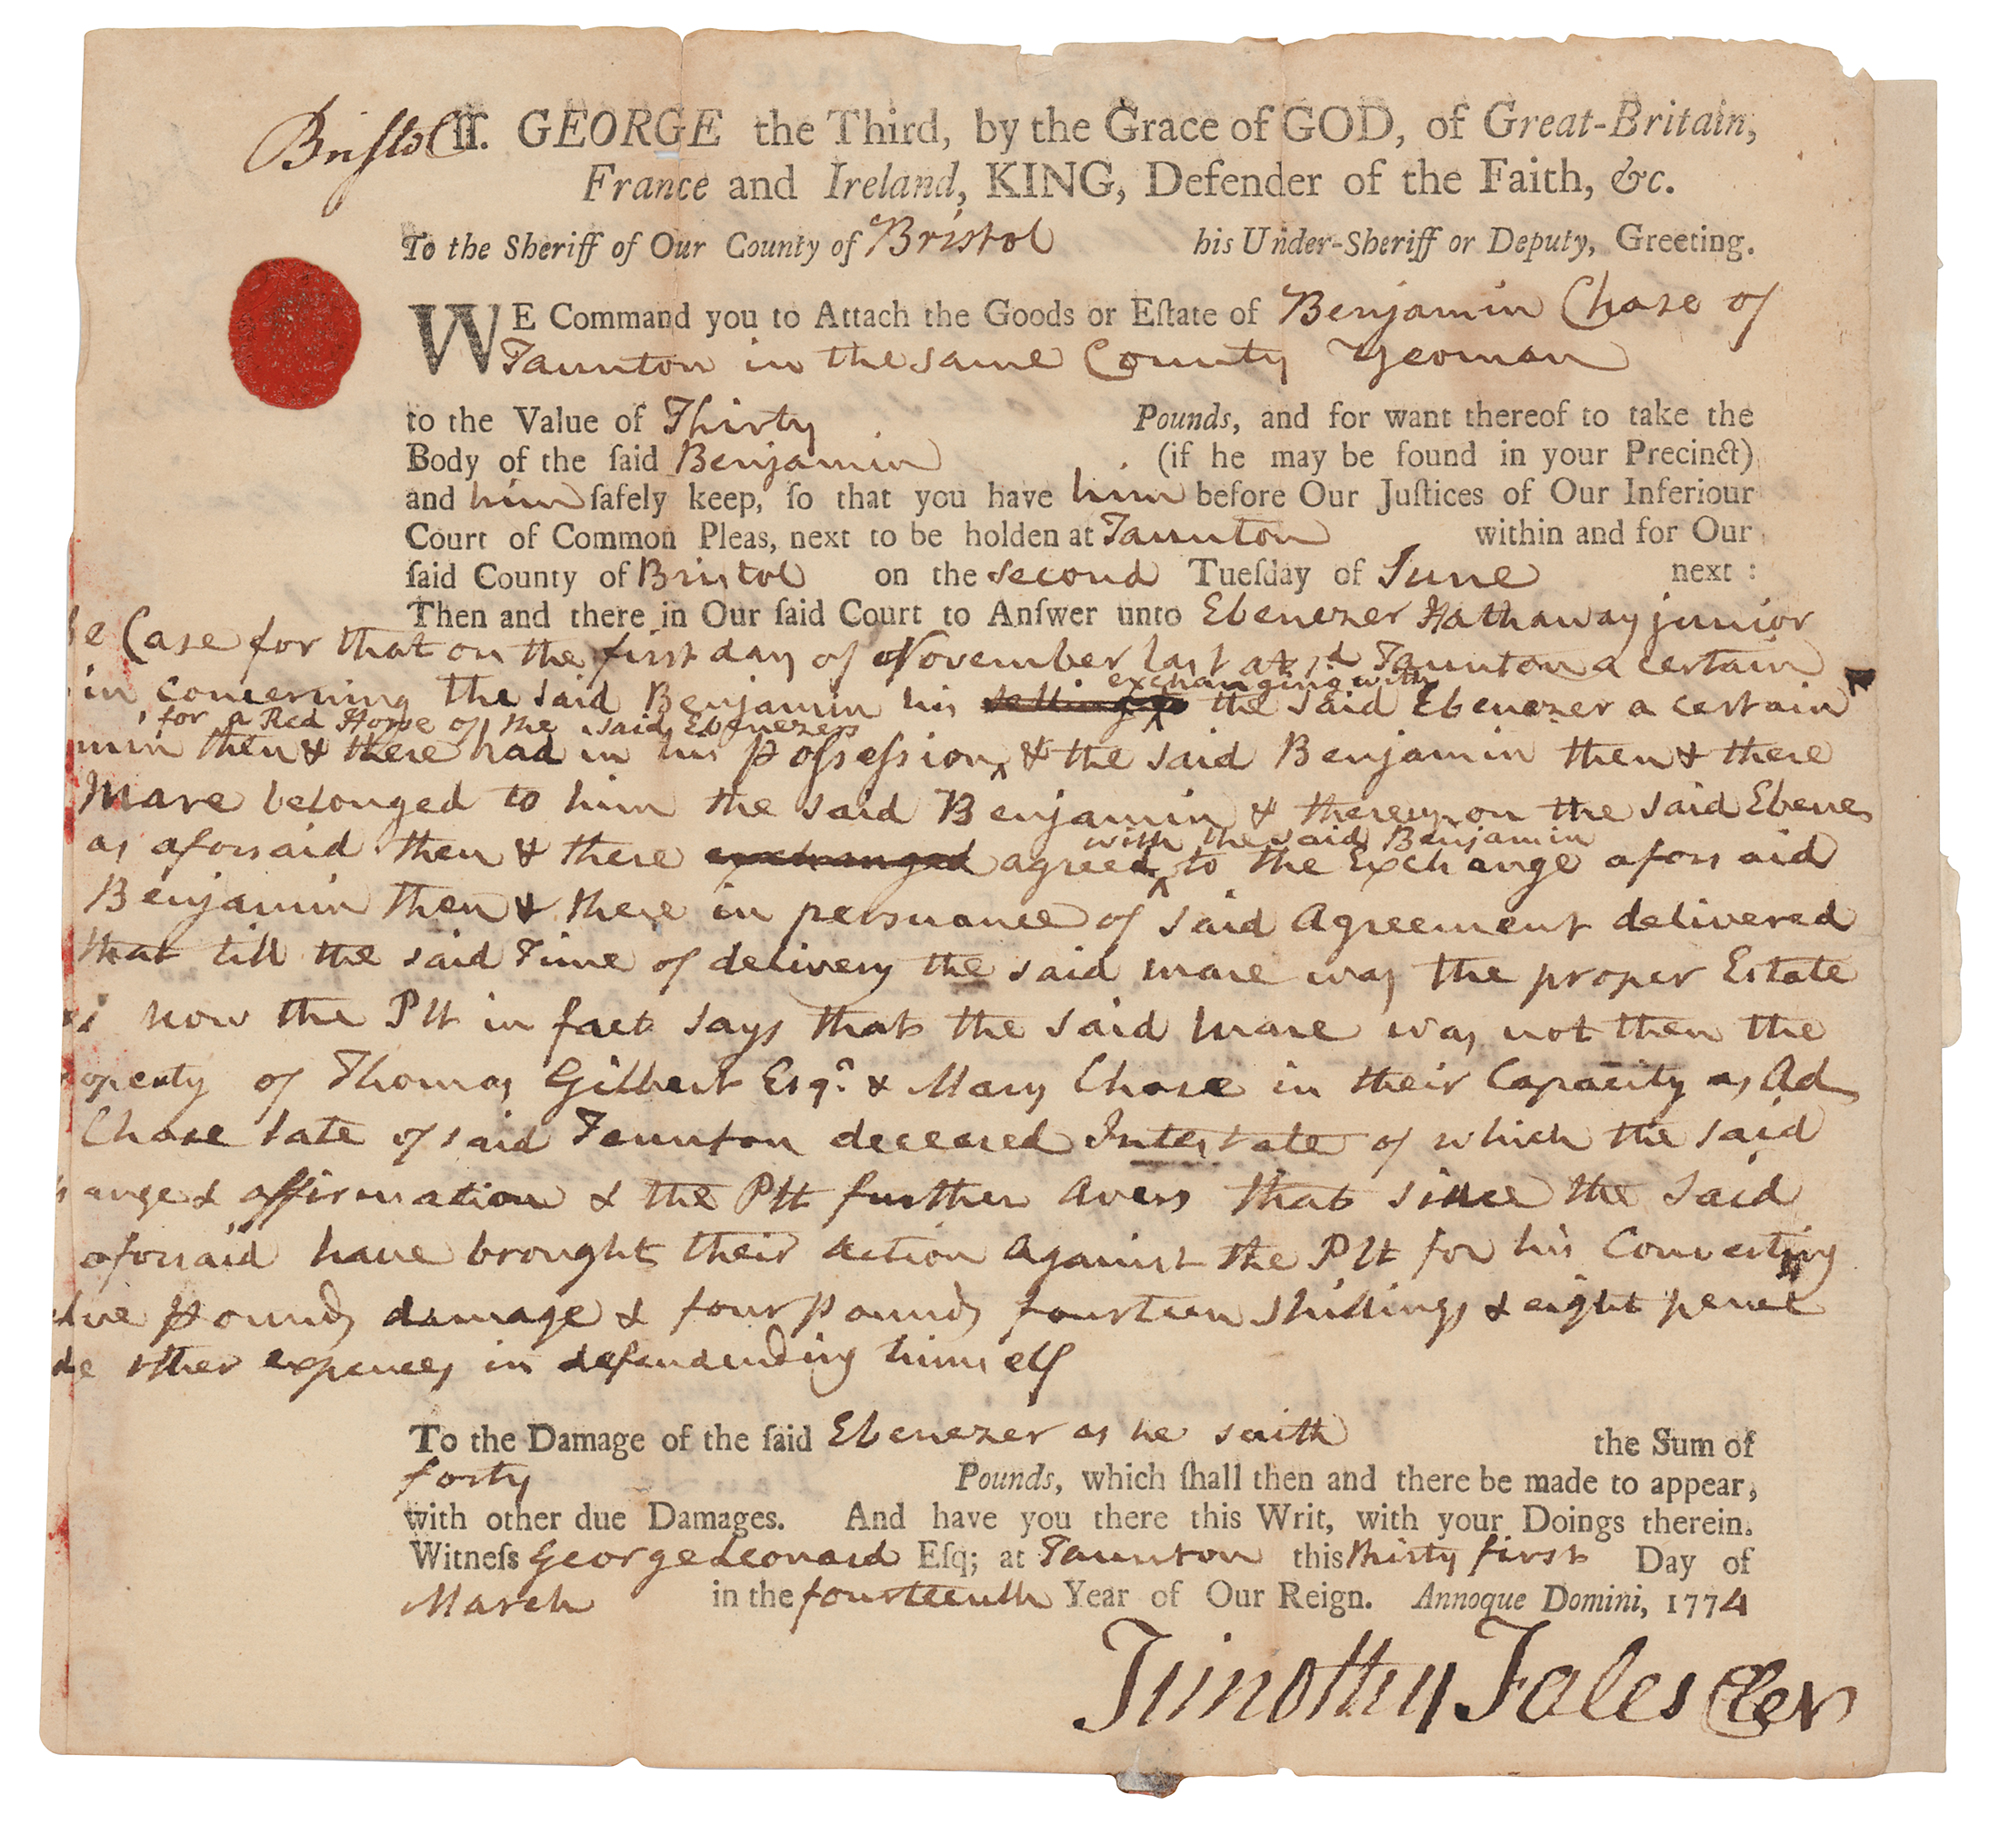 Bristol ss. GEORGE the Third, by the Grace of GOD, of Great-Britain,
France and Ireland, KING, Defender of the Faith, &c.
To the Sheriff of Our County of Bristol his Under-Sheriff or Deputy, Greeting.
WE Command you to Attach the Goods or Eſtate of Benjamin Chase of
Taunton in the same County Yeoman
to the Value of Thirty Pounds, and for want thereof to take the
Body of the ſaid Benjamin (if he may be found in your Precinct)
and him ſafely keep, ſo that you have him before Our Juſtices of Our Inferiour
Court of Common Pleas, next to be holden at Taunton within and for Our
ſaid County of Bristol on the second Tueſday of June next:
Then and there in Our ſaid Court to Anſwer unto Ebenezer Hathaway junior
Case for that on the first day of November last at sd Taunton a certain
exchanging with
in concerning the said Benjamin his the said Ebenezer a certain
for a Red Horse of the said Ebenezers
then & there had in his possession & the said Benjamin then & there
Mare belonged to him the said Benjamin & thereupon the said Ebene
with the said Benjamin
as aforsaid then & there exchanged agreed to the Exchange aforsaid
Benjamin then & there in persuance of said Agreement delivered
that till the said Time of delivery the said mare was the proper Estate
now the Plt in fact says that the said mare was not then the
operty of Thomas Gilbert Esqr. & Mary Chase in their Capacity as Ad
Chase late of said Taunton deceased Intestate of which the said
ange & affirmation & the Plt further avers that since the said
aforsaid have brought their action against the Plt for his Converting
pounds damage & four pounds fourteen shillings & eight pence
other expences in defendending himself
To the Damage of the ſaid Ebenezer as he saith the Sum of
forty Pounds, which ſhall then and there be made to appear,
with other due Damages. And have you there this Writ, with your Doings therein.
Witneſs George Leonard Eſq; at Taunton this thirty first Day of
March in the fourteenth Year of Our Reign. Annoque Domini, 1774
Timothy Fales Cler